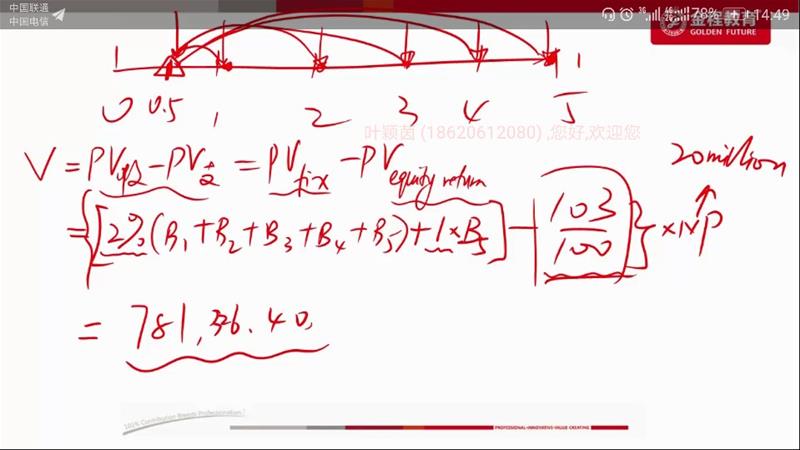 中国联通
中国电信
78% 14:49
金程教育
GOLDEN FUTURE
1 1
0 0.5 1 2 3 4 5
叶颖茵 (18620612080) ,您好,欢迎您
20 million
V = PV收 - PV支 = PV fix - PV equity return
= {[2%(B1+B2+B3+B4+B5)+1×B5] - 103/100} × NP
= 781,36.40.
100% Contribution Breeds Professionalism
PROFESSIONAL·INNOVATIVE·VALUE CREATING